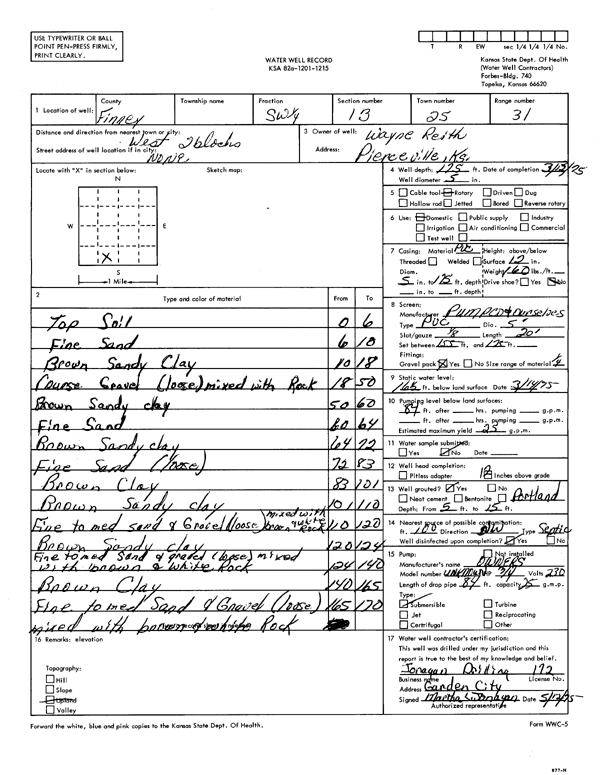 USE TYPEWRITER OR BALL
POINT PEN-PRESS FIRMLY,
PRINT CLEARLY.
WATER WELL RECORD
KSA 82a-1201-1215
T R EW sec 1/4 1/4 1/4 No.
Kansas State Dept. Of Health
(Water Well Contractors)
Forbes-Bldg. 740
Topeka, Kansas 66620
1 Location of well: County Township name Fraction Section number Town number Range number
Finney SW¼ 13 25 31
Distance and direction from nearest town or city: West 2 blocks
Street address of well location if in city: None
3 Owner of well: Wayne Reith
Address: Pierceville, Ks.
Locate with "X" in section below: Sketch map:
N
W E
X
S
1 Mile
4 Well depth: 175 ft. Date of completion 3/12/75
Well diameter 5 in.
5 Cable tool Rotary Driven Dug
Hollow rod Jetted Bored Reverse rotary
6 Use: Domestic Public supply Industry
Irrigation Air conditioning Commercial
Test well
7 Casing: Material PVC Height: above/below
Threaded Welded Surface 12 in.
Diam. Weight 160 lbs./ft.
5 in. to 175 ft. depth Drive shoe? Yes No
in. to ft. depth
2 Type and color of material From To
Top Soil 0 6
Fine Sand 6 10
Brown Sandy Clay 10 18
Course Gravel (loose) mixed with Rock 18 50
Brown Sandy clay 50 60
Fine Sand 60 64
Brown Sandy clay 64 72
Fine Sand (loose) 72 83
Brown Clay 83 101
Brown Sandy clay 101 110
Fine to med sand & Gravel (loose) mixed with brown & white Rock 110 120
Brown Sandy clay 120 124
Fine to med Sand & gravel (loose) mixed
with brown & white Rock 124 140
Brown Clay 140 165
Fine to med Sand & Gravel (loose) 165 170
mixed with brown & white Rock
8 Screen:
Manufacturer
Type PVC Dia. 5"
Slot/gauze 1/8 Length 20'
Set between 155 ft. and 175 ft.
Fittings:
Gravel pack Yes No Size range of material
9 Static water level:
ft. below land surface Date 3/14/75
10 Pumping level below land surfaces:
84 ft. after hrs. pumping g.p.m.
ft. after hrs. pumping g.p.m.
Estimated maximum yield 25 g.p.m.
11 Water sample submitted:
Yes No Date
12 Well head completion:
Pitless adapter 12 Inches above grade
13 Well grouted? Yes No
Neat cement Bentonite Portland
Depth: From 5 ft. to 15 ft.
14 Nearest source of possible contamination:
ft. 100 Direction Type Septic
Well disinfected upon completion? Yes No
15 Pump: Not installed
Manufacturer's name OWNERS
Model number UNKNOWN HP 3/4 Volts 230
Length of drop pipe 84 ft. capacity g.m.p.
Type:
Submersible Turbine
Jet Reciprocating
Centrifugal Other
16 Remarks: elevation
Topography:
Hill
Slope
Upland
Valley
17 Water well contractor's certification:
This well was drilled under my jurisdiction and this
report is true to the best of my knowledge and belief.
Jonagan Drilling 172
Business name License No.
Address Garden City
Signed Martha Date 5/12/75
Authorized representative
Forward the white, blue and pink copies to the Kansas State Dept. Of Health.
Form WWC-5
877-H